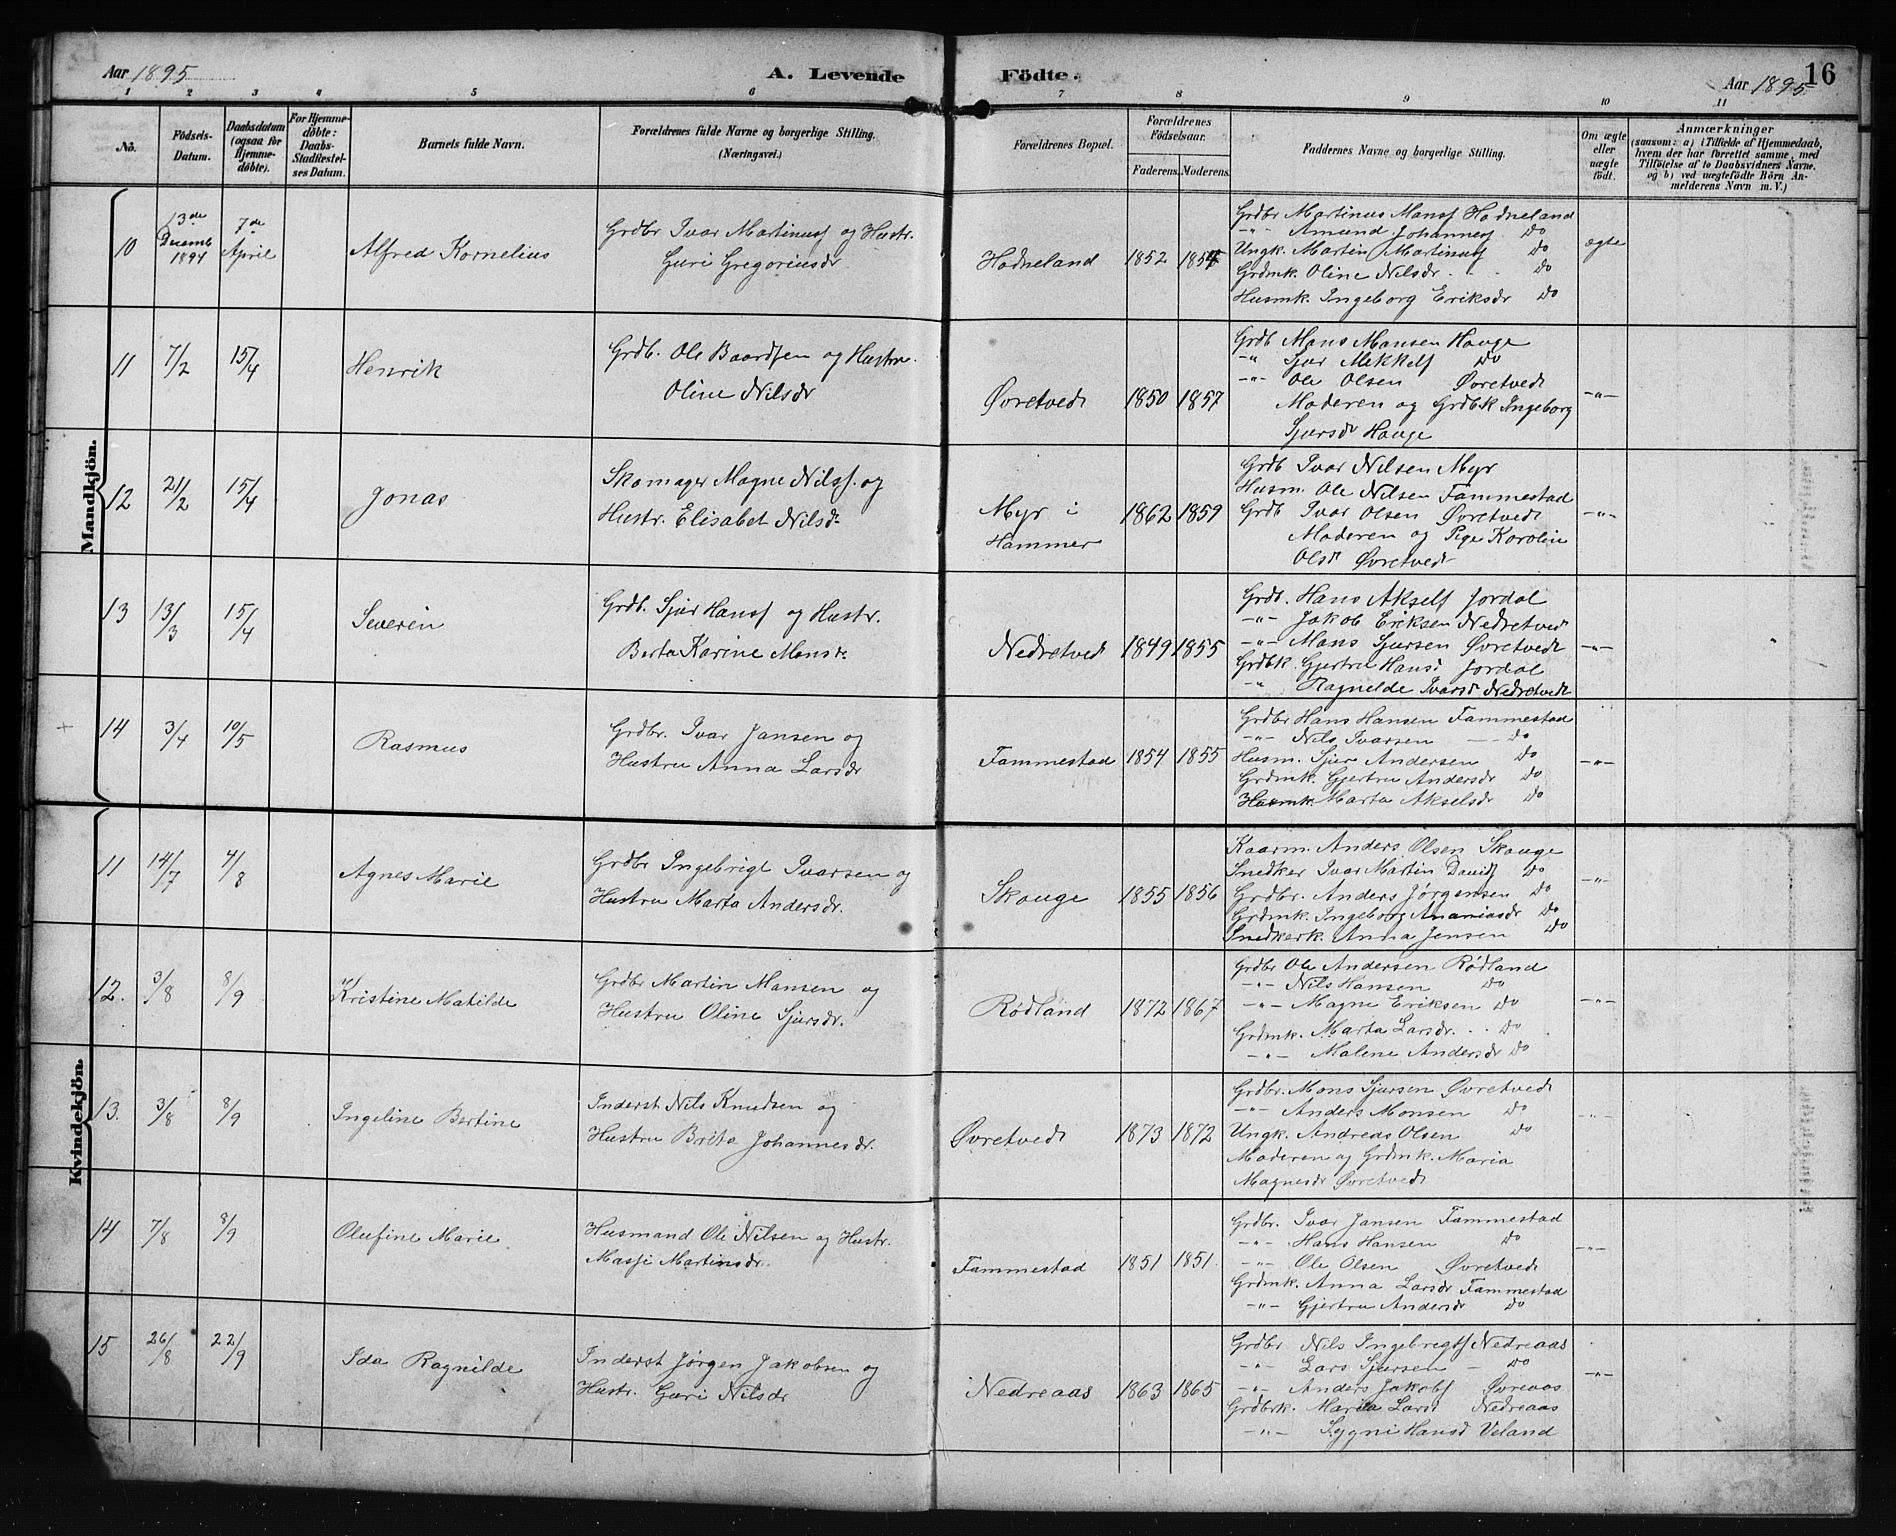 Aar 1895
A. Levende
Födte.
Aar 1895
16
1 2 3 4 5 6 7 8 9 10 11
No.
Födsels-Datum.
Daabsdatum (ogsaa for Hjemmedöbte).
For Hjemmedöbte: Daabs-Stadfestelses Datum.
Barnets fulde Navn.
Forældrenes fulde Navne og borgerlige Stilling.
(Næringsvei.)
Forældrenes Bopæl.
Forældrenes Födselsaar.
Faderens. Moderens.
Faddernes Navne og borgerlige Stilling.
Om ægte eller uægte födt.
Anmærkninger
(saasom: a) i Tilfælde af Hjemmedaab, hvem der har forrettet samme, med Tilföielse af to Daabsvidners Navne, og b) ved uægtefödte Börn Anmelderens Navn m. V.)
Mandkjön.
10
13de Decemb 1894
7de April
Alfred Kornelius
Grdbr Ivar Martinusf og Hustr.
Guri Gregoriusdr
Hodneland
1852 1854
Grdbr Martinus Monsf Hodneland
-"- Amund Johannesf Do
Ungk. Martin Martinusf Do
Grdmk. Oline Nilsdr Do
Husmk. Ingeborg Eriksdr Do
ægte
11
7/2
15/4
Henrik
Grdb. Ole Baardsen og Hustru
Oline Nilsdr
Øvretvedt
1850 1857
Grdb Mons Monsen Hauge
-"- Sjur Mikkelsf Do
-"- Ole Olsen Øvretvedt
Moderen og Grdbk Ingeborg
Sjursdr Hauge
-"-
12
21/2
15/4
Jonas
Skomager Magne Nilsf. og
Hustr. Elisabet Nilsdr
Myr i
Hammer
1862 1859
Grdb Ivar Nilsen Myr
Husm. Ole Nilsen Fammestad
Grdb Ivar Olsen Øvretvedt
Moderen og Pige Karolin
Olsdr Øvretvedt
-"-
13
13/3
15/4
Severin
Grdb. Sjur Hansf og Hustr.
Berta Karine Monsdr
Nedretved
1849 1855
Grdb. Hans Akself Jordal
-"- Jakob Eriksen Nedretvedt
-"- Mons Sjursen Øvretvedt
Grdbk. Gjertru Hansd Jordal
-"- Ragnilde Ivarsd Nedretvedt
-"-
14
3/4
10/5
Rasmus
Grdbr. Ivar Jansen og
Hustru Anna Larsdr
Fammestad
1854 1855
Grdbr Hans Hansen Fammestad
-"- Nils Ivarsen Do
Husm. Sjur Andersen Do
Grdmk. Gjertru Andersdr Do
Husmk. Marta Akselsdr Do
-"-
Kvindekjön.
11
14/7
4/8
Agnes Marie
Grdbr Ingebrigt Ivarsen og
Hustru Marta Andersdr.
Skauge
1855 1856
Kaarm. Anders Olsen Skauge
Snedker Ivar Martin Davidf Do
Grdbr. Anders Jørgensen Do
Grdmk. Ingeborg Ananiasdr Do
Snedkerk. Anna Jensen Do
-"-
12.
3/8
8/9
Kristine Matilde
Grdbr Martin Monsen og
Hustru Oline Sjursdr.
Rødland
1872 1867
Grdbr Ole Andersen Rødland
-"- Nils Hansen Do
-"- Magne Eriksen Do
Grdmk. Marta Larsdr. Do
-"- Malene Andersdr Do
-"-
13.
3/8
8/9
Ingeline Bertine
Inderst Nils Knudsen og
Hustru Brita Johannesdr.
Øvretvedt
1873 1872
Grdbr. Mons Sjursen Øvretvedt
-"- Anders Monsen Do
Ungk. Andreas Olsen Do
Moderen og Grdmk. Maria
Magnesdr Øvretvedt
-"-
14
7/8
8/9
Olufine Marie
Husmand Ole Nilsen og Hustr.
Masji Martinsdr.
Fammestad
1851 1851.
Grdbr. Ivar Jansen Fammestad
-"- Hans Hansen Do
-"- Ole Olsen Øvretvedt
Grdmk. Anna Larsdr Fammestad
-"- Gjertru Andersdr Do
-"-
15
26/8
22/9
Ida Ragnilde
Inderst Jørgen Jakobsen og
Hustr. Guri Nilsdr
Nedreaas
1863 1865
Grdbr Nils Ingebrigtf Nedreaas
-"- Lars Sjursen Do
-"- Anders Jakobf Øvreaas
Grdbrk. Maria Larsd Nedreaas
-"- Sygni Hansd Veland
-"-